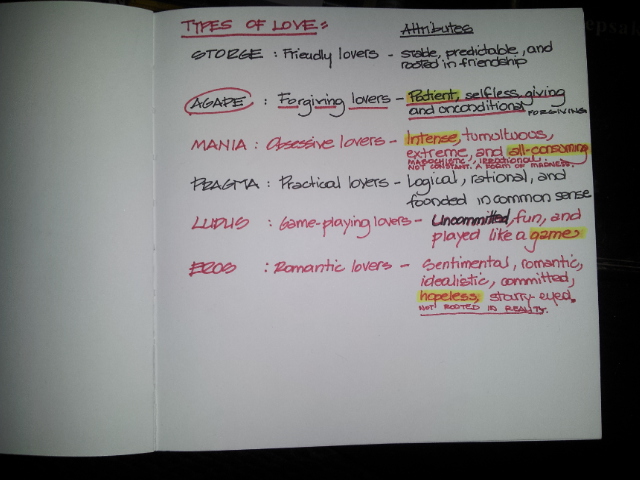 TYPES OF LOVE: Attributes
STORGE : Friendly lovers - stable, predictable, and
rooted in friendship
AGAPE : Forgiving lovers - Patient, selfless, giving
and unconditional FORGIVING
MANIA : Obsessive lovers - Intense, tumultuous,
extreme, and all-consuming
MASOCHISTIC, IRRATIONAL.
NOT CONSTANT. A FORM OF MADNESS.
PRAGMA : Practical lovers - Logical, rational, and
founded in common sense
LUDUS : Game-playing lovers - Uncommitted, fun, and
played like a game
EROS : Romantic lovers - Sentimental, romantic,
idealistic, committed,
hopeless, starry-eyed.
NOT ROOTED IN REALITY.